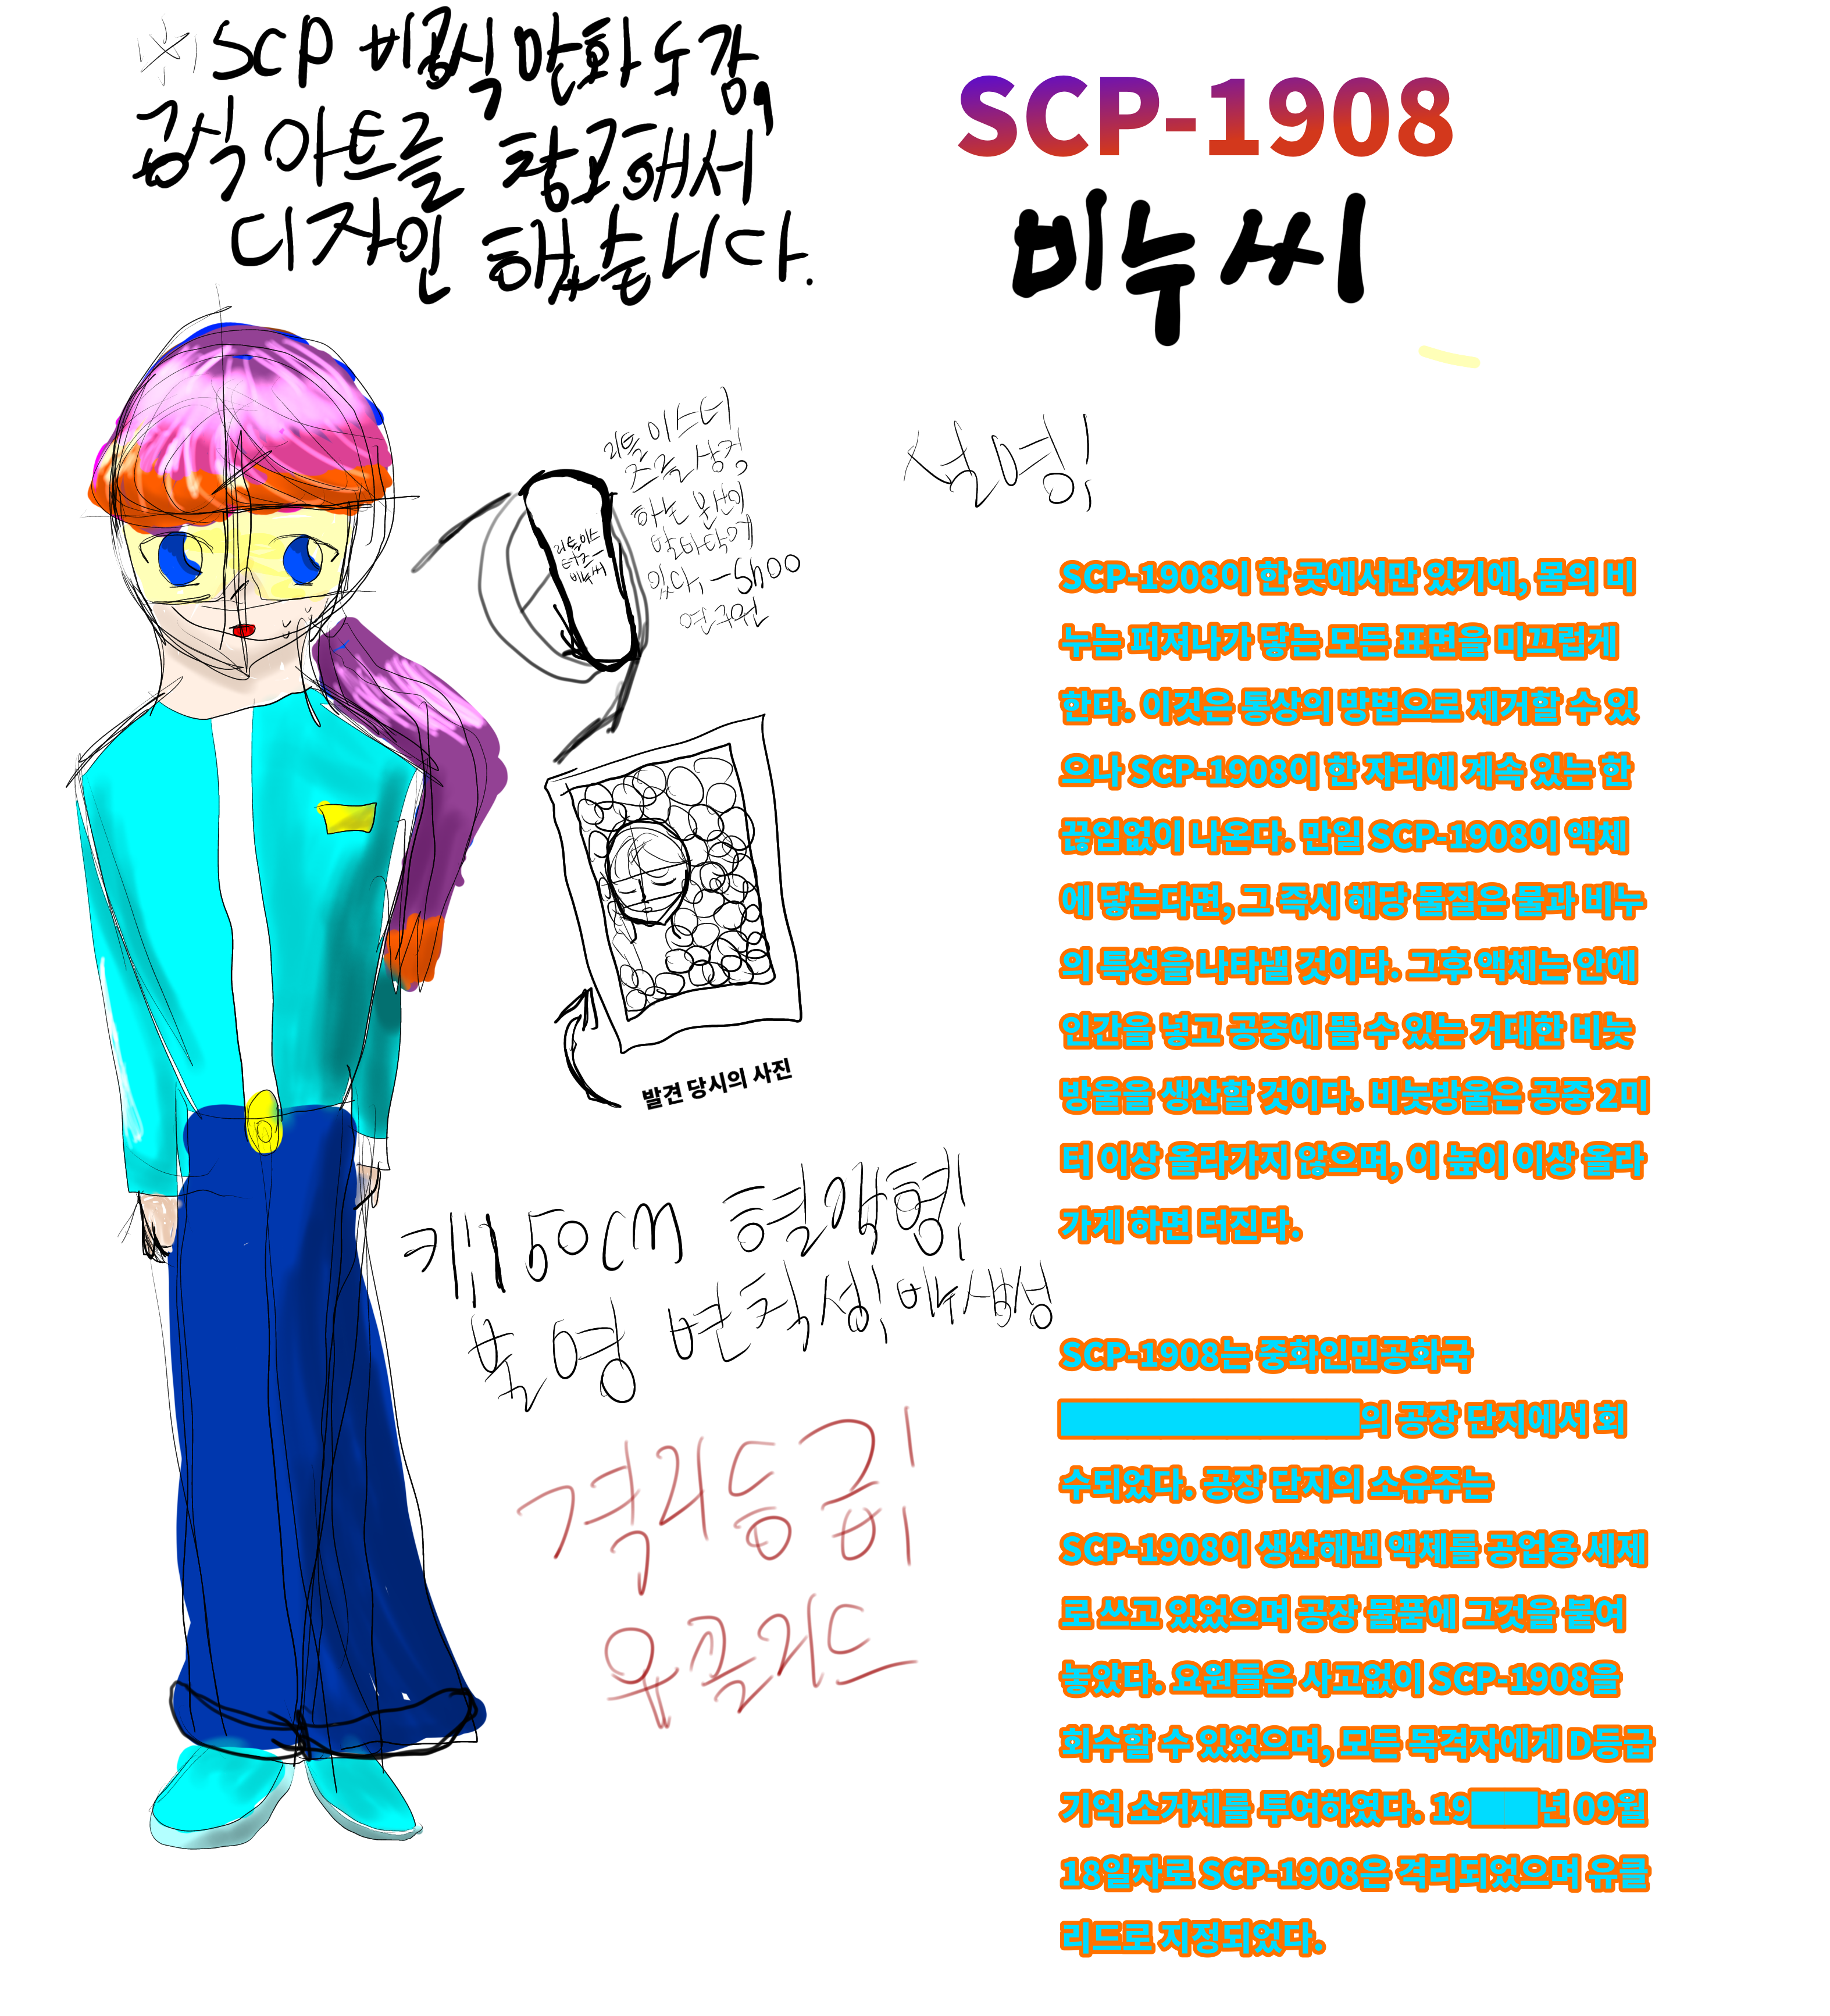 ※ SCP 비공식 만화 도감,
공식 아트를 참고해서
디자인 했습니다.
SCP-1908
비누 씨
리틀 미스터
즈를 상징
하는 문신이
발바닥에
있다, -Shoo
연구원
리틀 미스
터즈-
비누씨
발견 당시의 사진
키: 150cm 혈액형:
불명 변칙성: 비누생성
격리등급:
유클리드
설명:
SCP-1908이 한 곳에서만 있기에, 몸의 비
누는 퍼져나가 닿는 모든 표면을 미끄럽게
한다. 이것은 통상의 방법으로 제거할 수 있
으나 SCP-1908이 한 자리에 계속 있는 한
끊임없이 나온다. 만일 SCP-1908이 액체
에 닿는다면, 그 즉시 해당 물질은 물과 비누
의 특성을 나타낼 것이다. 그후 액체는 안에
인간을 넣고 공중에 뜰 수 있는 거대한 비눗
방울을 생산할 것이다. 비눗방울은 공중 2미
터 이상 올라가지 않으며, 이 높이 이상 올라
가게 하면 터진다.
SCP-1908는 중화인민공화국
의 공장 단지에서 회
수되었다. 공장 단지의 소유주는
SCP-1908이 생산해낸 액체를 공업용 세제
로 쓰고 있었으며 공장 물품에 그것을 붙여
놓았다. 요원들은 사고없이 SCP-1908을
회수할 수 있었으며, 모든 목격자에게 D등급
기억 소거제를 투여하였다. 19██년 09월
18일자로 SCP-1908은 격리되었으며 유클
리드로 지정되었다.